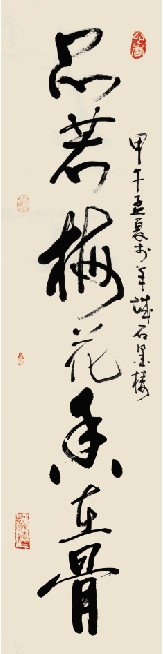 品若梅花香在骨
甲午孟夏於羊城石墨楼